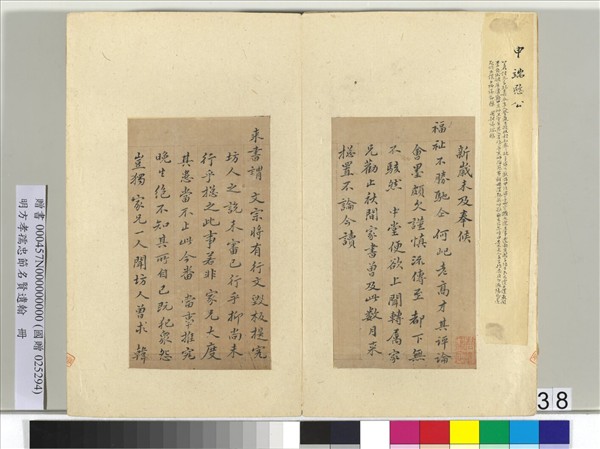 申端愍公
新歲未及奉候
福祉不勝馳企何屺老高才其評論
會墨頗欠謹慎流傳至都下無
不駭然中堂便欲上聞轉屬家
兄勸止秋間家書曾及此數月來
挨置不論今讀
來書謂文宗將有行文毀板提究
坊人之說未審已行乎抑尚未
行乎挨之此事若非家兄大度
其患當不止此今番當平推完
晚生絕不知其所自已既犯眾怨
豈獨家兄一人聞坊人曾求韓
贈書 000457N000000000 (國贈 025294)
明方孝孺忠節名賢遺翰 冊
38